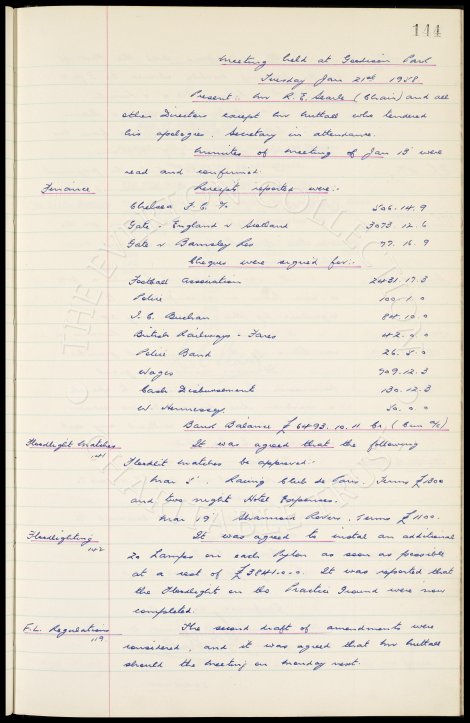 144
Meeting held at Goodison Park
Tuesday Jan 21st 1958
Present:- Mr R. E. Searle (Chair) and all
other Directors except Mr Nuttall who tendered
his apologies. Secretary in attendance.
Minutes of Meeting of Jan 13 were
read and confirmed.
Finance
Receipts reported were:-
Chelsea F.C. % 506.14.9
Gate - England v Scotland 3073.12.6
Gate v Barnsley Res 77.16.9
Cheques were signed for:-
Football Association 2431.17.3
Police 100.1.0
I. C. Buchan 84.10.0
British Railways - Fares 42.0.0
Police Band 26.5.0
Wages 909.12.3
Cash Disbursements 130.12.3
W. Hennessey 50.0.0
Bank Balance £6493.10.11 Cr. (Curr a/c)
Floodlight Matches
141
It was agreed that the following
Floodlit Matches be approved:-
Mar 5. Racing Club de Paris. Terms £1300
and two night Hotel Expenses.
Mar 19 Shamrock Rovers. Terms £1100.
Floodlighting
142
It was agreed to instal an additional
20 Lamps on each Pylon as soon as possible
at a cost of £3841.0.0. It was reported that
the Floodlights on the Practice Ground were now
completed.
F.L. Regulations
119
The second draft of amendments were
considered, and it was agreed that Mr Nuttall
should the Meeting on Monday next.
THE EVERTON COLLECTION
CHARITABLE TRUST